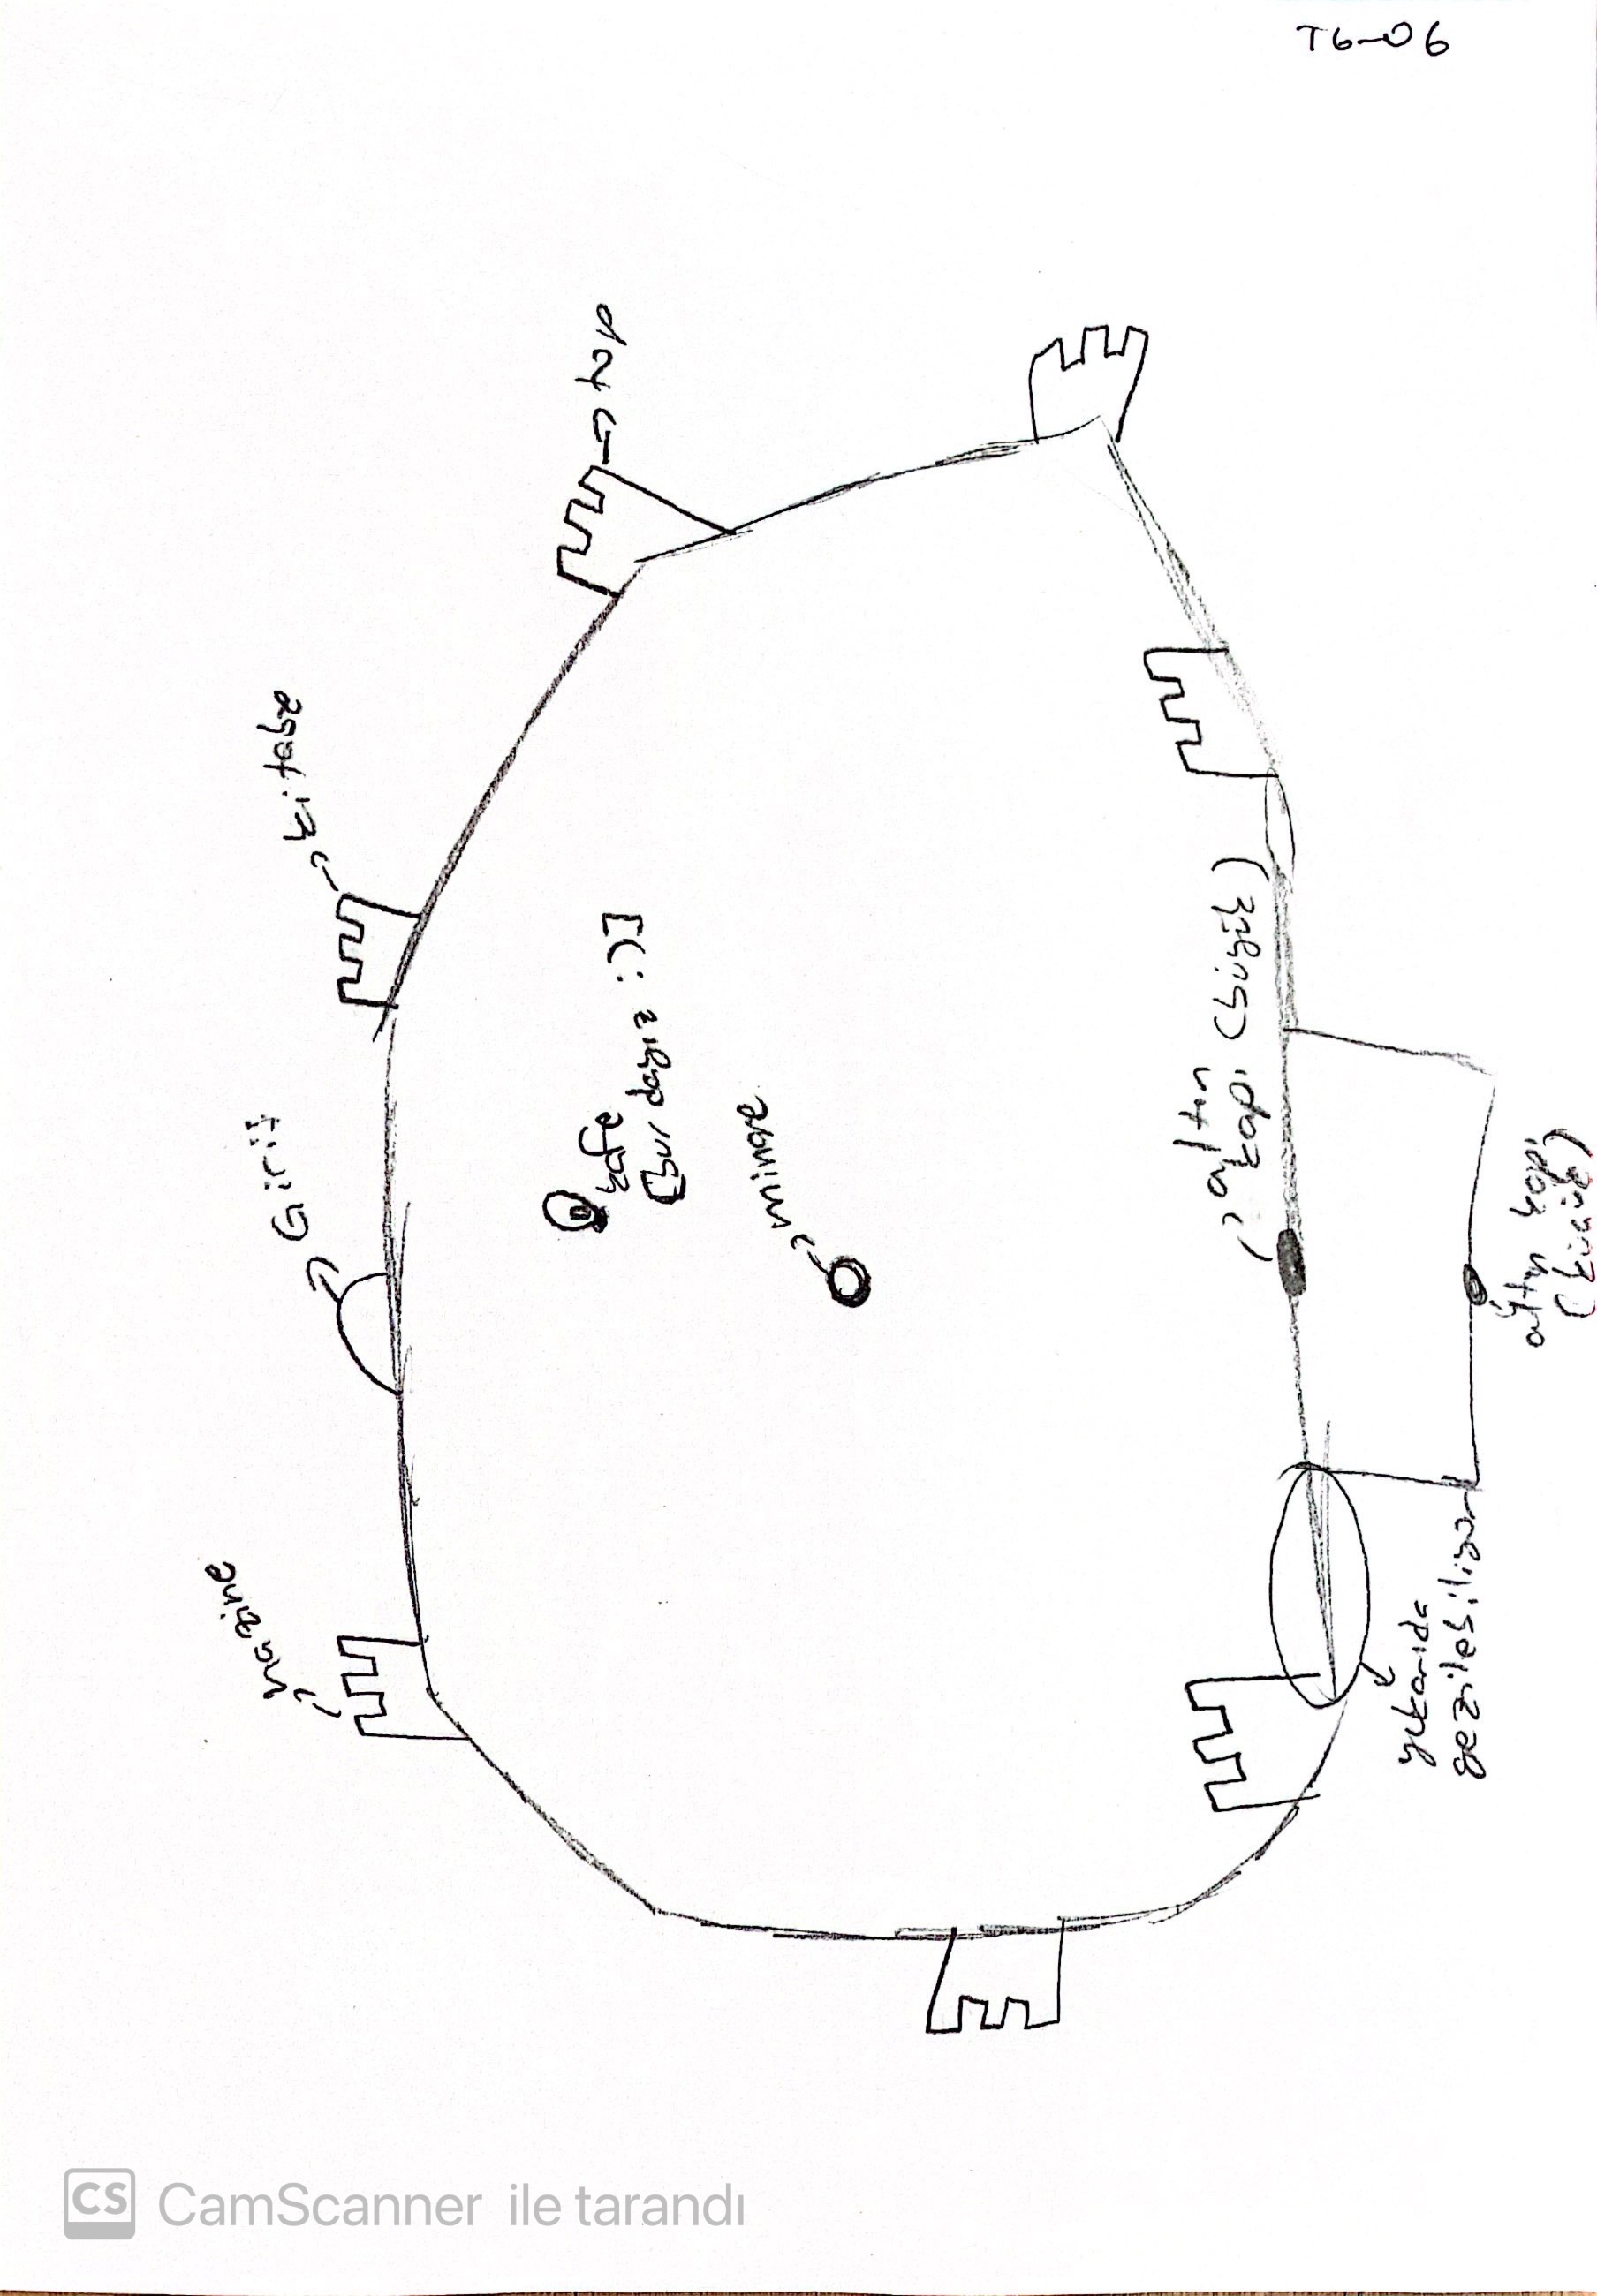 T6-06
top
kitabe
Giriş
hazine
kafe
(bu/ degiz :)]
minare
altın
kapı (büyük)
altın kapı
(küçük)
yukarıda
gezilebiliyor
CS CamScanner ile tarandı